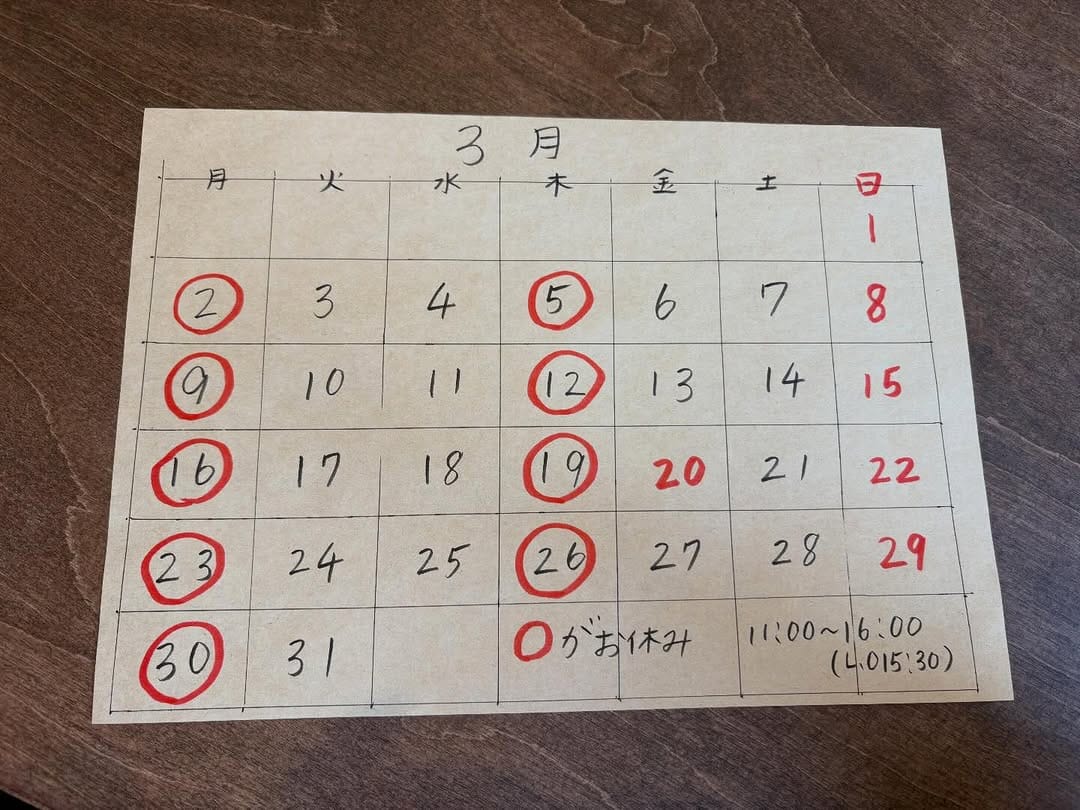 3月
月 火 水 木 金 土 日
1
2 3 4 5 6 7 8
9 10 11 12 13 14 15
16 17 18 19 20 21 22
23 24 25 26 27 28 29
30 31 ○がお休み 11:00~16:00
(L.O15:30)